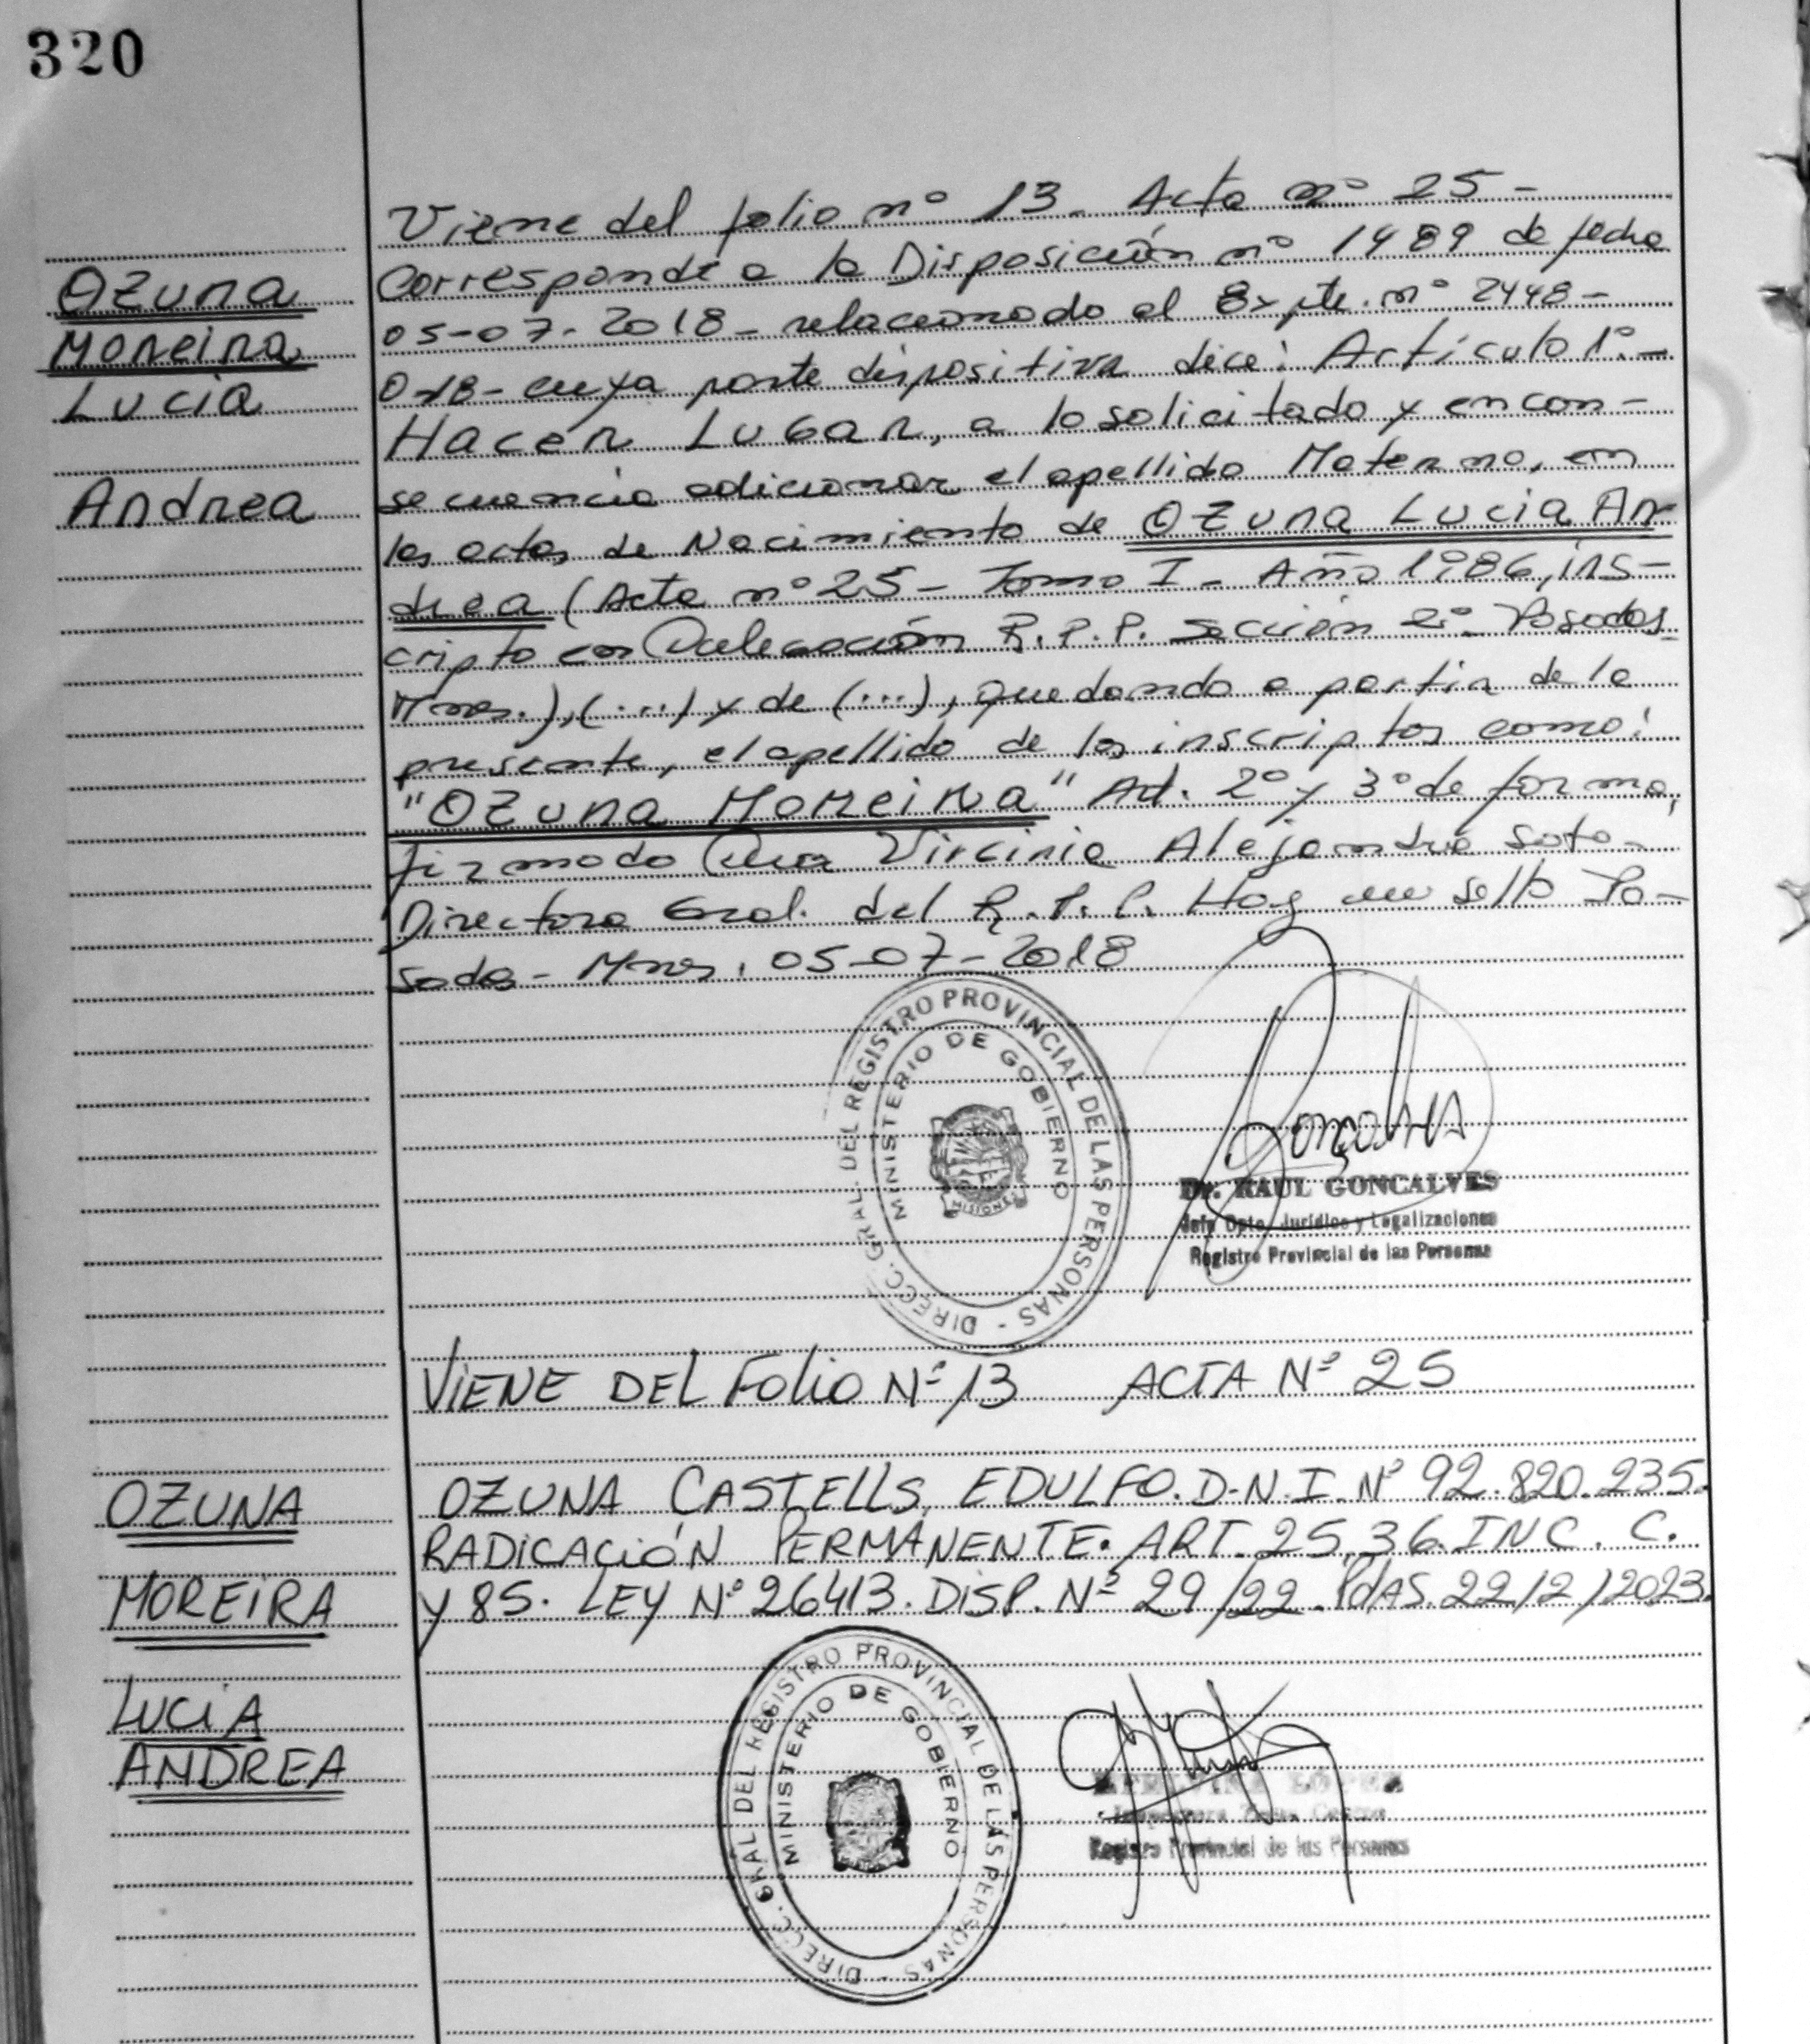 320
Viene del folio nº 13. Acta nº 25-
Corresponde a la Disposición nº 1489 de fecha
05-07-2018- relacionado al Expte. nº 2448-
018- cuya parte dispositiva dice: Artículo 1º-
Hacer Lugar, a lo solicitado y en con-
secuencia adicionar el apellido Materno, en
las actas de Nacimiento de Ozuna Lucia An-
drea (Acta nº 25- Tomo I- Año 1986, ins-
cripto en Delegación R.P.P. Sección 2º- Posadas
Mnes.), (...) y de (...), quedando a partir de la
presente, el apellido de los inscriptos como:
"Ozuna Moreira" Art. 2º y 3º de forma,
firmado Dra Virginia Alejandra Soto-
Directora Gral. del R.P.P. Hay un sello Po-
sadas- Mnes. 05-07-2018
Ozuna
Moreira
Lucia
Andrea
DIRECC. GRAL. DEL REGISTRO PROVINCIAL DE LAS PERSONAS -
MINISTERIO DE GOBIERNO
MISIONES
Goncalves
Dr. RAUL GONCALVES
Jefe Dpto. Jurídico y Legalizaciones
Registro Provincial de las Personas
VIENE DEL FOLIO Nº 13 ACTA Nº 25
OZUNA CASTELLS, EDULFO. D.N.I. Nº 92.820.235.
RADICACIÓN PERMANENTE. ART. 25, 36. INC. C.
Y 85. LEY Nº 26413. DISP. Nº 29/22. PDAS. 22/2/2023.
OZUNA
MOREIRA
LUCIA
ANDREA
DIRECC. GRAL. DEL REGISTRO PROVINCIAL DE LAS PERSONAS -
MINISTERIO DE GOBIERNO
Registro Provincial de las Personas